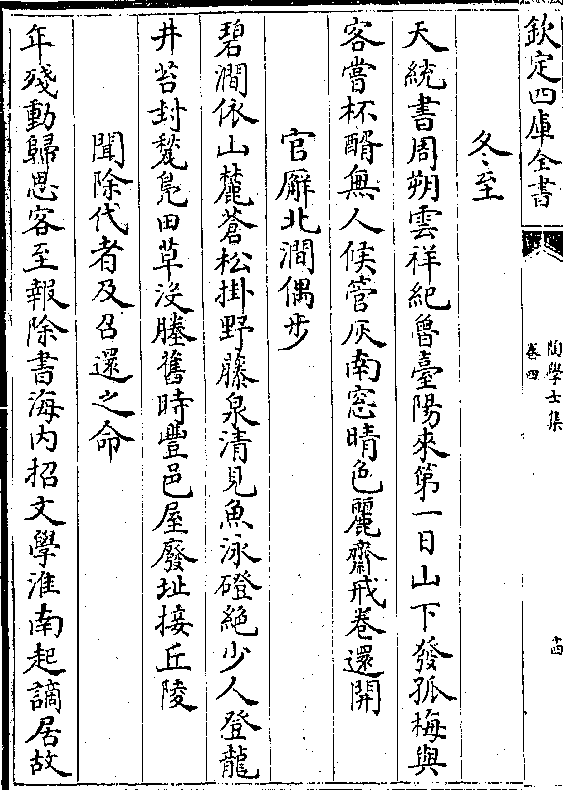 欽定四庫全書
陶學士集
卷四
十四
冬至
天統書周朔雲祥紀魯臺陽來第一日山下發孤梅與
客嘗杯醑無人候管灰南窓晴色麗齋戒卷還開
官廨北澗偶步
碧澗依山麓蒼松掛野藤泉清見魚泳磴絶少人登龍
井苔封甃鳬田草没塍舊時豐邑屋廢址接丘陵
聞除代者及召還之命
年殘動歸思客至報除書海内招文學淮南起謫居故